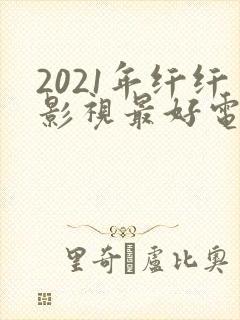 2021年纤纤
影視最好電
里奇·盧比奧